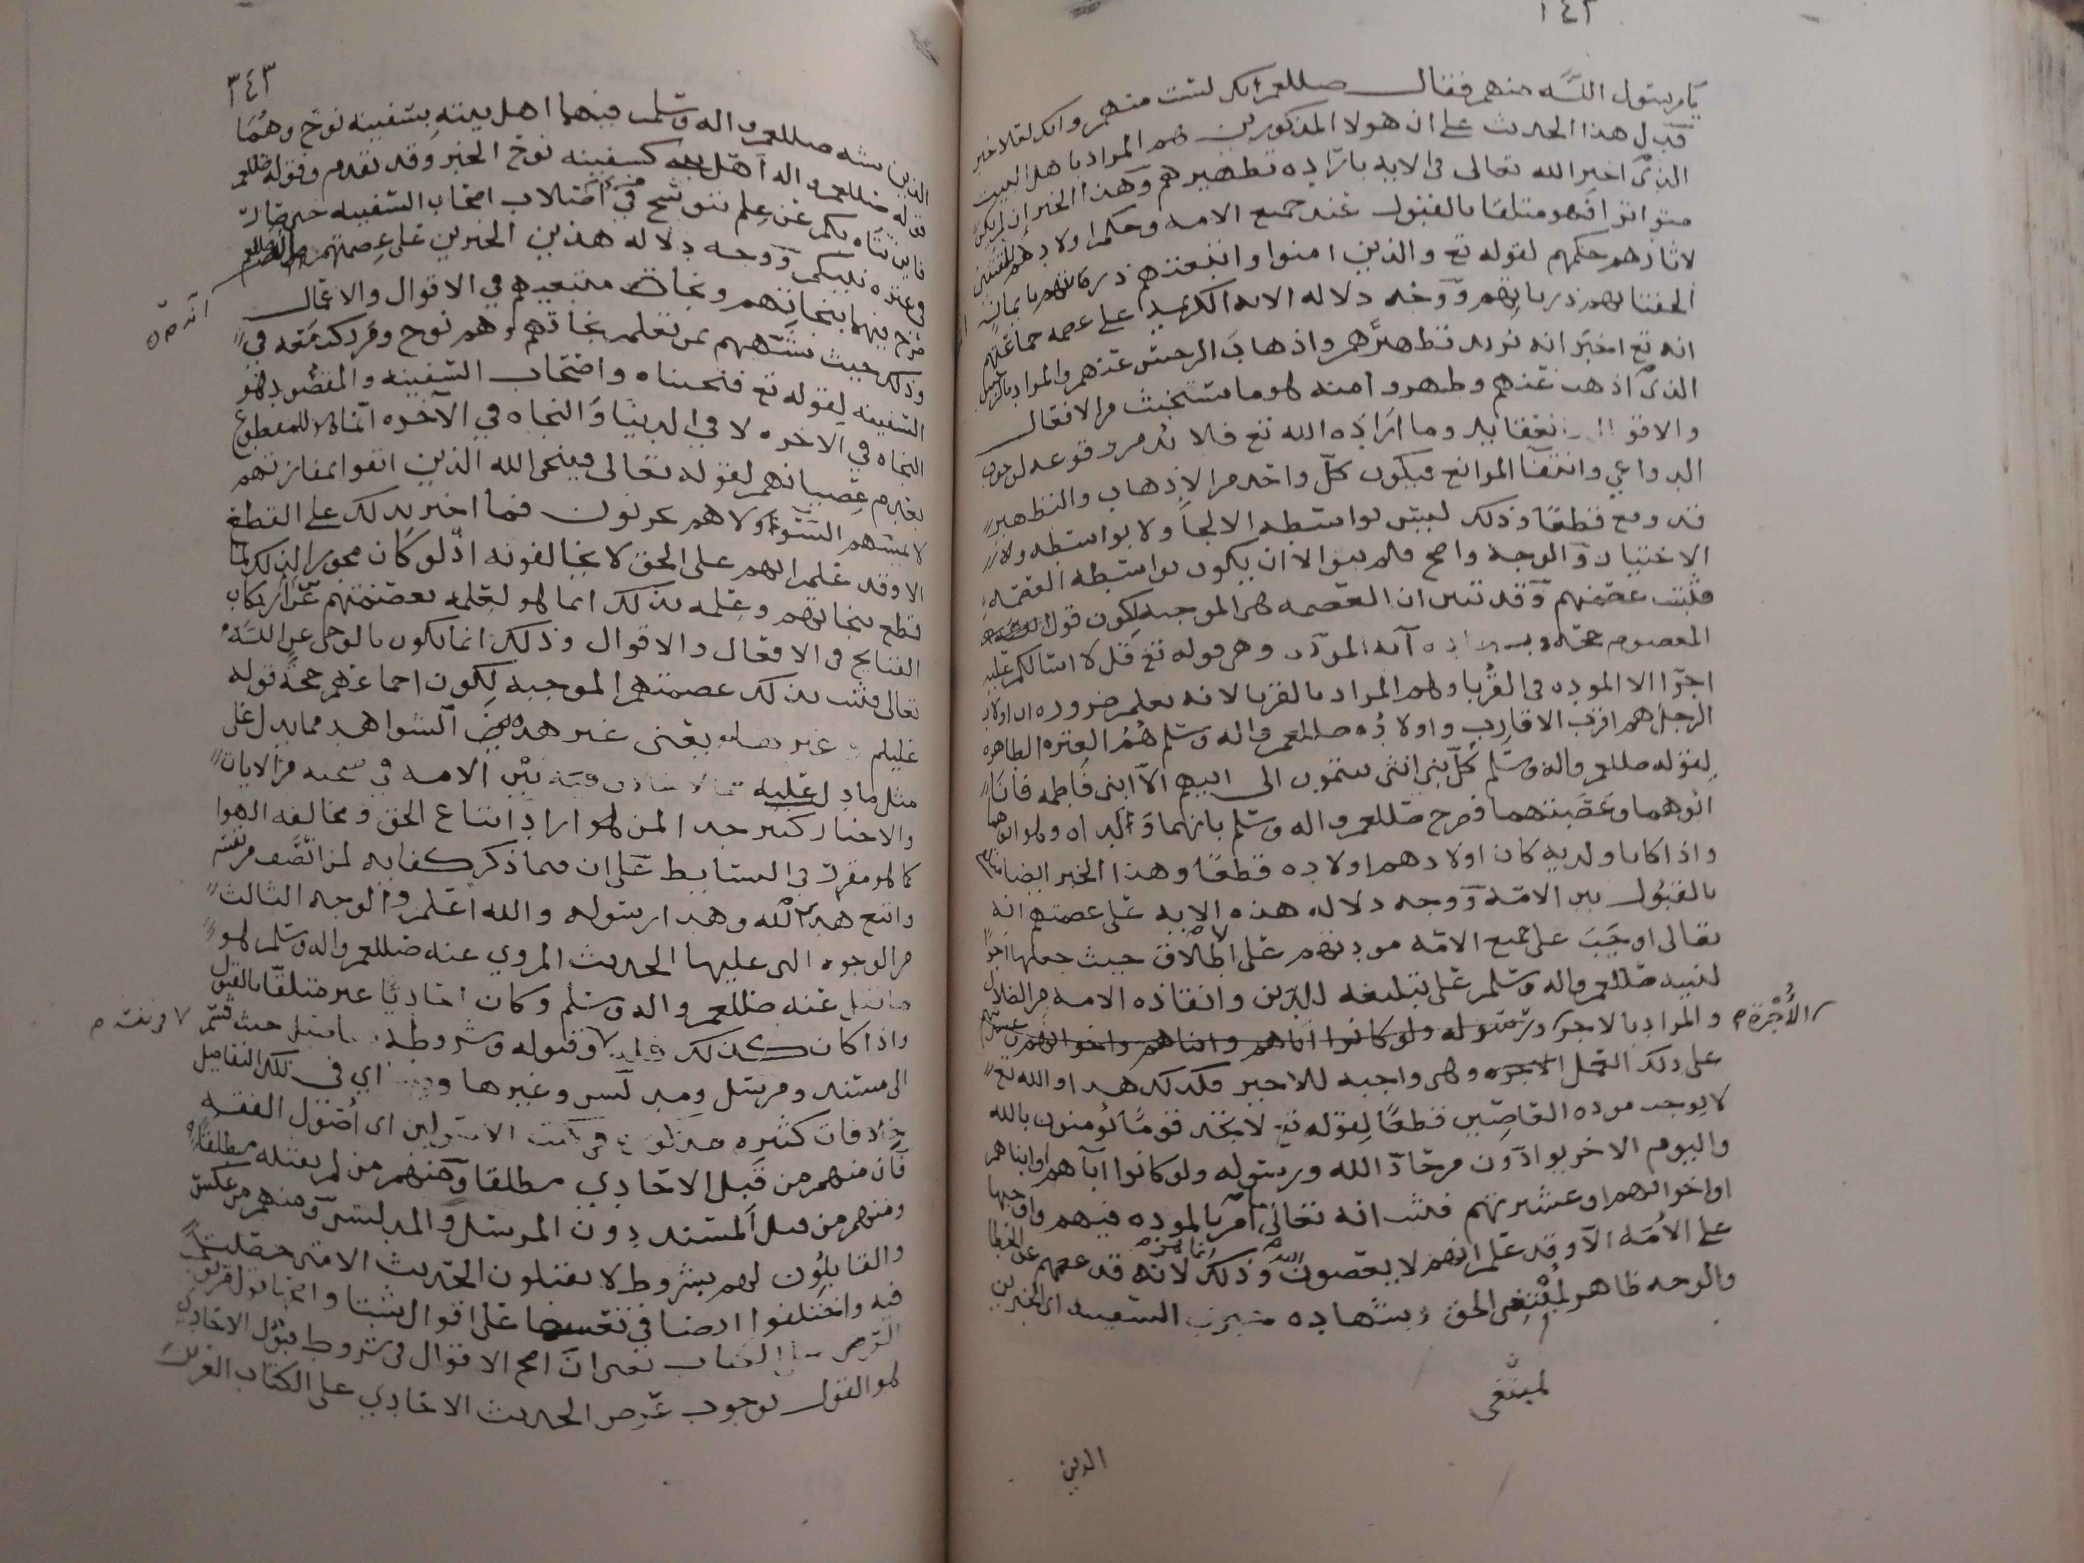 ٣٤٢
يا رسول الله منهم فقال صللعم انك لست منهم وانك لعلا خير
فدل هذا الحديث على ان هولا المذكورين هم المراد باهل البيت
الذي اخبر الله تعالى في الايه باراده تطهيرهم وهذا الخبر ان لم يكن
متواترا فهو متلقا بالقبول عند جميع الامه وحكم اولادهم المقتفين
لاثارهم حكمهم لقوله تع والذين امنوا واتبعتهم ذرياتهم بايمان
الحقنا بهم ذرياتهم ووجه دلاله الايه الكريمه على عصمه جماعتهم
انه تع اخبر انه يريد تطهيرهم واذهاب الرجس عنهم والمراد بالرجس
الذي اذهب عنهم وطهروا منه هو ما يستخبث من الافعال
والاقوال اتفقنا وما اراده الله تع فلا بد من وقوعه لوجود
الدواعي وانتفا الموانع فيكون كل واحد من الاذهاب والتطهير
قد وقع قطعا وذلك ليس بواسطه الالجا ولا بواسطه ولا
الاختيار والوجه واضح فلم يبق الا ان يكون بواسطه العصمه
فثبت عصمتهم وقد تبين ان العصمه هي الموجبه لكون قول
المعصوم حجه آيه المودة وهي قوله تع قل لا اسالكم عليه
اجرا الا الموده في القربا وهم المراد بالقربا لانه يعلم ضروره ان اولاد
الرجل هم اقرب الاقارب واولاده صللعم واله وسلم هم العتره الطاهره
لقوله صللعم واله وسلم كل بني انثى ينتمون الى ابيهم الا ابني فاطمه فانا
ابوهما وعصبتهما فصرح صللعم واله وسلم بانهما ولداه وهو ابوهما
واذا كانا ولديه كان اولادهم اولاده قطعا وهذا الخبر ايضا متلقا
بالقبول بين الامه ووجه دلاله هذه الايه على عصمتهم انه
تعالى اوجب على جميع الامه مودتهم على الاطلاق حيث جعلها اجرا
لنبيه صللعم واله وسلم على تبليغه للدين وانقاذه الامه من الضلال
والمراد بالاجر ورسوله ولو كانوا اباهم وابناهم واخوانهم
الأجرة
على ذلك العمل الاجره وهي واجبه للاجير فكذلك هذا والله تع
لا يوجب موده العاصين قطعا لقوله تع لا تجد قوما يؤمنون بالله
واليوم الاخر يوادون من حاد الله ورسوله ولو كانوا آباهم او ابناهم
او اخوانهم او عشيرتهم فثبت انه تعالى ما امر بالموده فيهم واوجبها
على الأمه الا وقد علم انهم لا يعصون وذلك لانه قد عصمهم عن الخطا
والوجه ظاهر لمبتغي الحق وشهاده خبري السفينه اي الخبرين
لمبتغي
الذين
٣٤٣
الذين شبه صللعم واله وسلم فيهما اهل بيته بسفينه نوح وهما
قوله صللعم واله اهل بيتي كسفينه نوح الخبر وقد تقدم وقوله صللعم
فاين يتاه بكم عن علم تنوسخ من اصلاب اصحاب السفينه حتى صار
في عتره نبيكم ووجه دلاله هذين الخبرين على عصمتهم
صرح بينهما بنجاتهم ونجاة متبعيهم في الاقوال والافعال
وذلك حيث شبههم بمن نعلم نجاتهم وهم نوح ومن ركب معه في
السفينه لقوله تع فنجيناه واصحاب السفينه والمقصود هو
النجاه في الاخره لا في الدنيا والنجاه في الآخره انما هي للمقطوع
بعدم عصيانهم لقوله تعالى وينجي الله الذين اتقوا بمفازتهم
لا يمسهم السوء ولا هم يحزنون فما اخبر بذلك على القطع
الا وقد علم انهم على الحق لا يخالفونه اذ لو كان مجوزا لذلك لما
قطع بنجاتهم وعلمه بذلك انما هو لعلمه بعصمتهم عن ارتكاب
القبايح في الافعال والاقوال وذلك انما يكون بالوحي عن الله
تعالى فثبت بذلك عصمتهم الموجبه لكون اجماعهم حجة قوله
عليلم غير يعني غير هذين الشواهد مما يدل على
مثل ما دل عليه بين الامه في صحته من الايات
والاخبار كثير جدا لمن هو اراد اتباع الحق ومخالفه الهوا
كما هو مقرر في البسايط على ان فيما ذكر كفايه لمن انصف من نفسه
واتبع هدى الله وهدا رسوله والله اعلم والوجه الثالث
من الوجوه التي عليها الحديث المروي عنه صللعم واله وسلم هو
ما نقل عنه صللعم واله وسلم وكان احاديا غير متلقا بالقبول
واذا كان كذلك وقبوله وشروطه حيث قسم
الى مسند ومرسل ومدلس وغيرها اي في تلك التفاصيل
خلافات كثيره مذكوره في كتب الاصولين اي أصول الفقه
فان منهم من قبل الاحادي مطلقا ومنهم من لم يقبله مطلقا
ومنهم من قبل المسند دون المرسل والمدلس ومنهم من عكس
والقايلون لهم بشروط لا يقبلون الحديث الا مع حصلتها
فيه واختلفوا ايضا في تفسيرها على اقوال شتا
الكتاب يعني ان اصح الاقوال في شروط قبول الاحادي
هو القول بوجوب عرض الحديث الاحادي على الكتاب العزيز